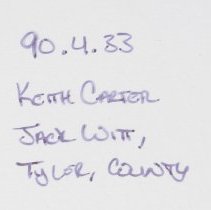 90.4.33
Keith Carter
Jack Witt,
Tyler, County